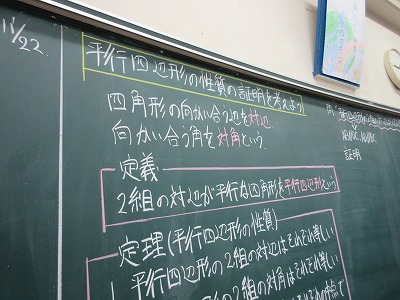 11/22.
平行四辺形の性質の証明を考えよう
四角形の向かい合う辺を対辺
向かい合う角を対角という。
定義
2組の対辺が平行な四角形を平行四辺形という
定理(平行四辺形の性質)
平行四辺形の2組の対辺はそれぞれ等しい
の2組の対角はそれぞれ等しい
証明